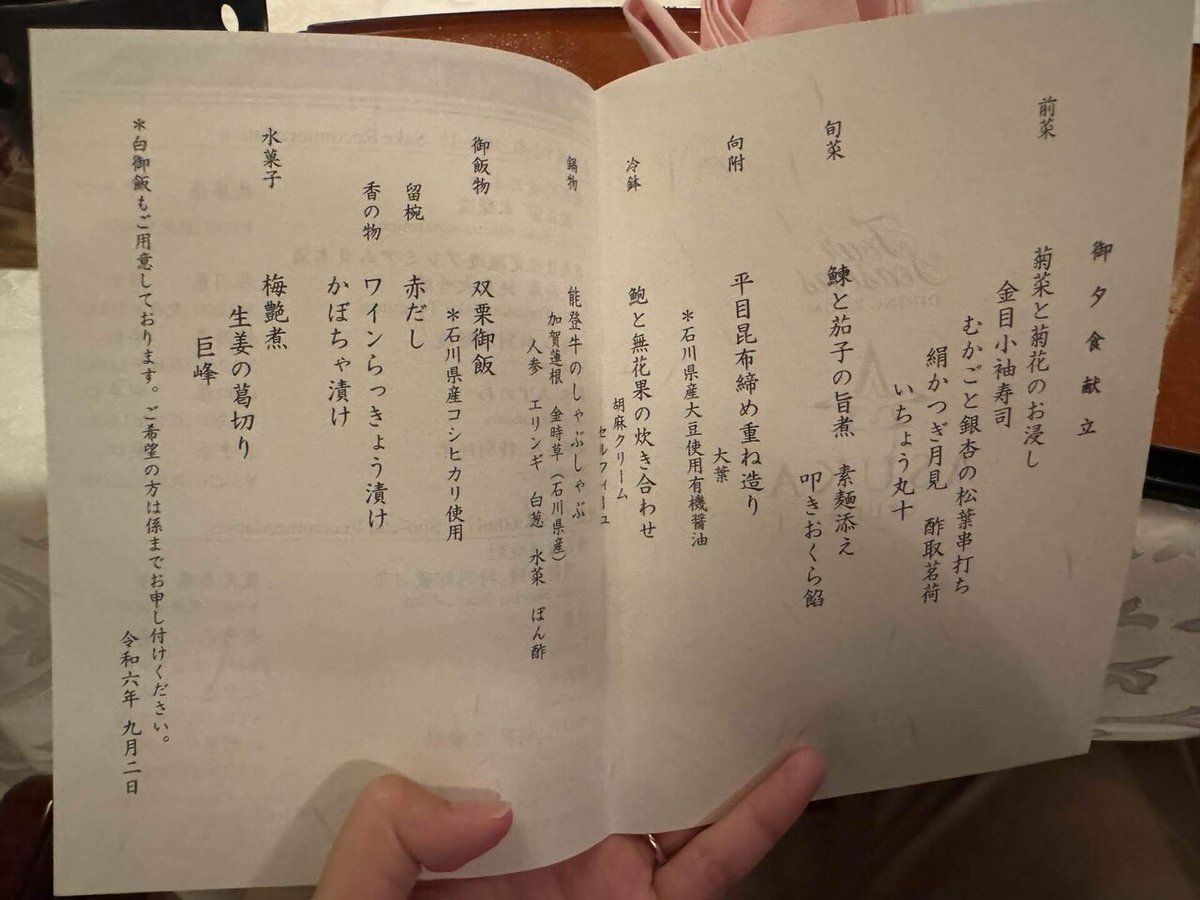 御夕食献立
前菜
菊菜と菊花のお浸し
金目小袖寿司
むかごと銀杏の松葉串打ち
絹かつぎ月見 酢取茗荷
いちょう丸十
旬菜
鰊と茄子の旨煮 素麺添え
叩きおくら餡
向附
平目昆布締め重ね造り
大葉
*石川県産大豆使用有機醤油
冷鉢
鮑と無花果の炊き合わせ
胡麻クリーム
セルフィーユ
鍋物
能登牛のしゃぶしゃぶ
加賀蓮根 金時草(石川県産)
人参 エリンギ 白葱 水菜 ぽん酢
御飯物
双栗御飯
*石川県産コシヒカリ使用
留椀
赤だし
香の物
ワインらっきょう漬け
かぼちゃ漬け
水菓子
梅艶煮
生姜の葛切り
巨峰
*白御飯もご用意しております。ご希望の方は係までお申し付けください。
令和六年 九月二日